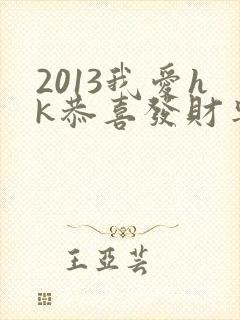 2013我愛h
k恭喜發財
王亞芸